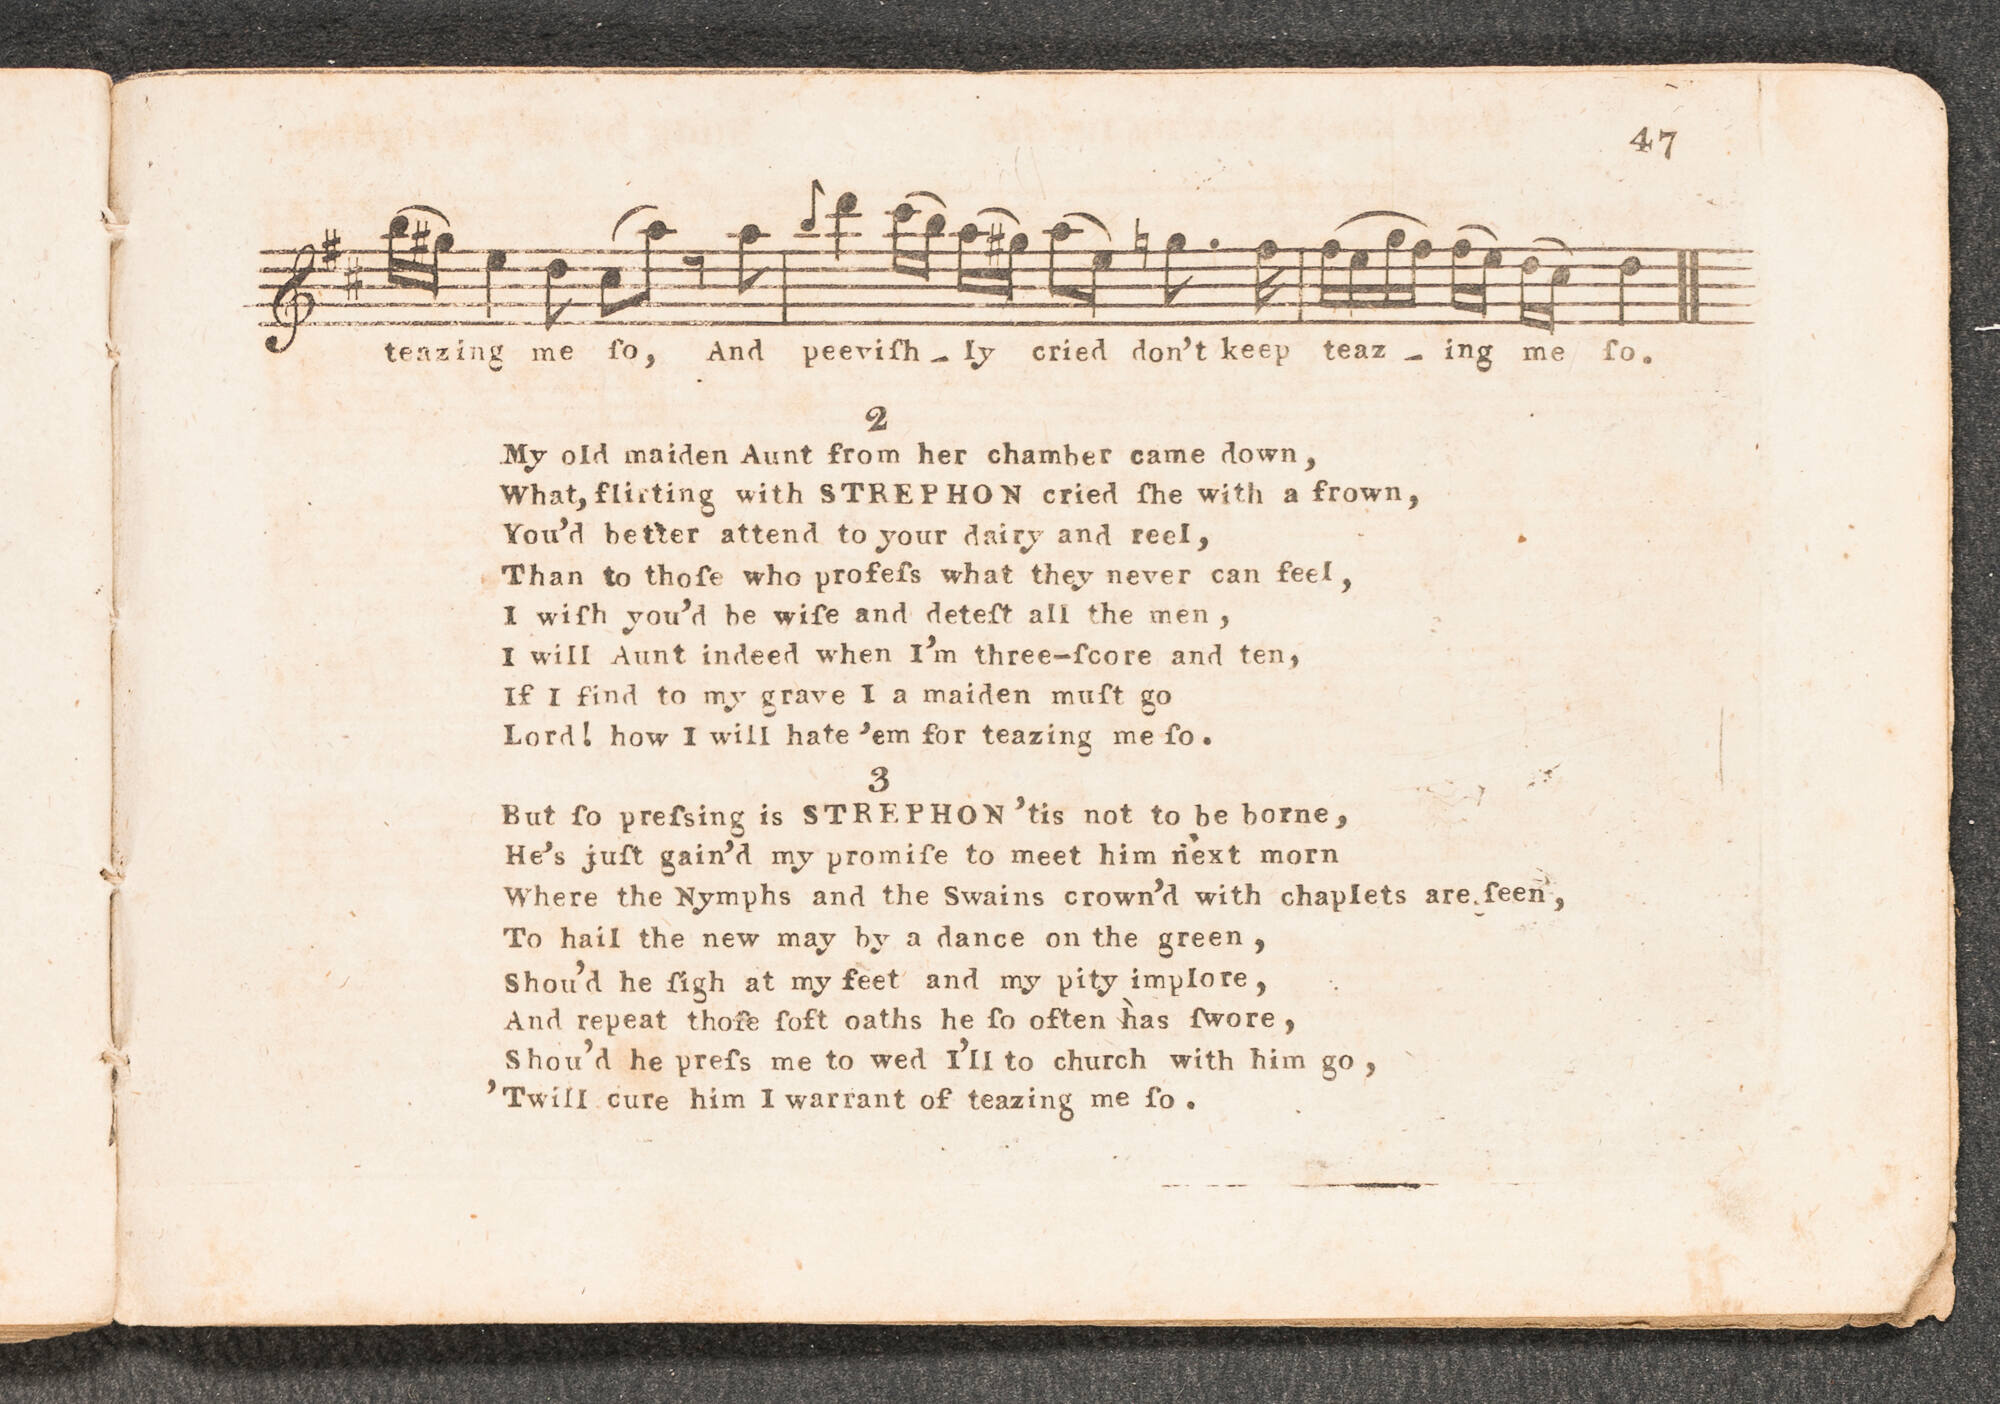 47
teazing me ſo, And peeviſh - ly cried don't keep teaz - ing me ſo.
2
My old maiden Aunt from her chamber came down,
What, flirting with STREPHON cried ſhe with a frown,
You'd better attend to your dairy and reel,
Than to thoſe who profeſs what they never can feel,
I wiſh you'd be wiſe and deteſt all the men,
I will Aunt indeed when I'm three-ſcore and ten,
If I find to my grave I a maiden muſt go
Lord! how I will hate 'em for teazing me ſo.
3
But ſo preſsing is STREPHON 'tis not to be borne,
He's juſt gain'd my promiſe to meet him next morn
Where the Nymphs and the Swains crown'd with chaplets are ſeen,
To hail the new may by a dance on the green,
Shou'd he ſigh at my feet and my pity implore,
And repeat thoſe ſoft oaths he ſo often has ſwore,
Shou'd he preſs me to wed I'll to church with him go,
'Twill cure him I warrant of teazing me ſo.